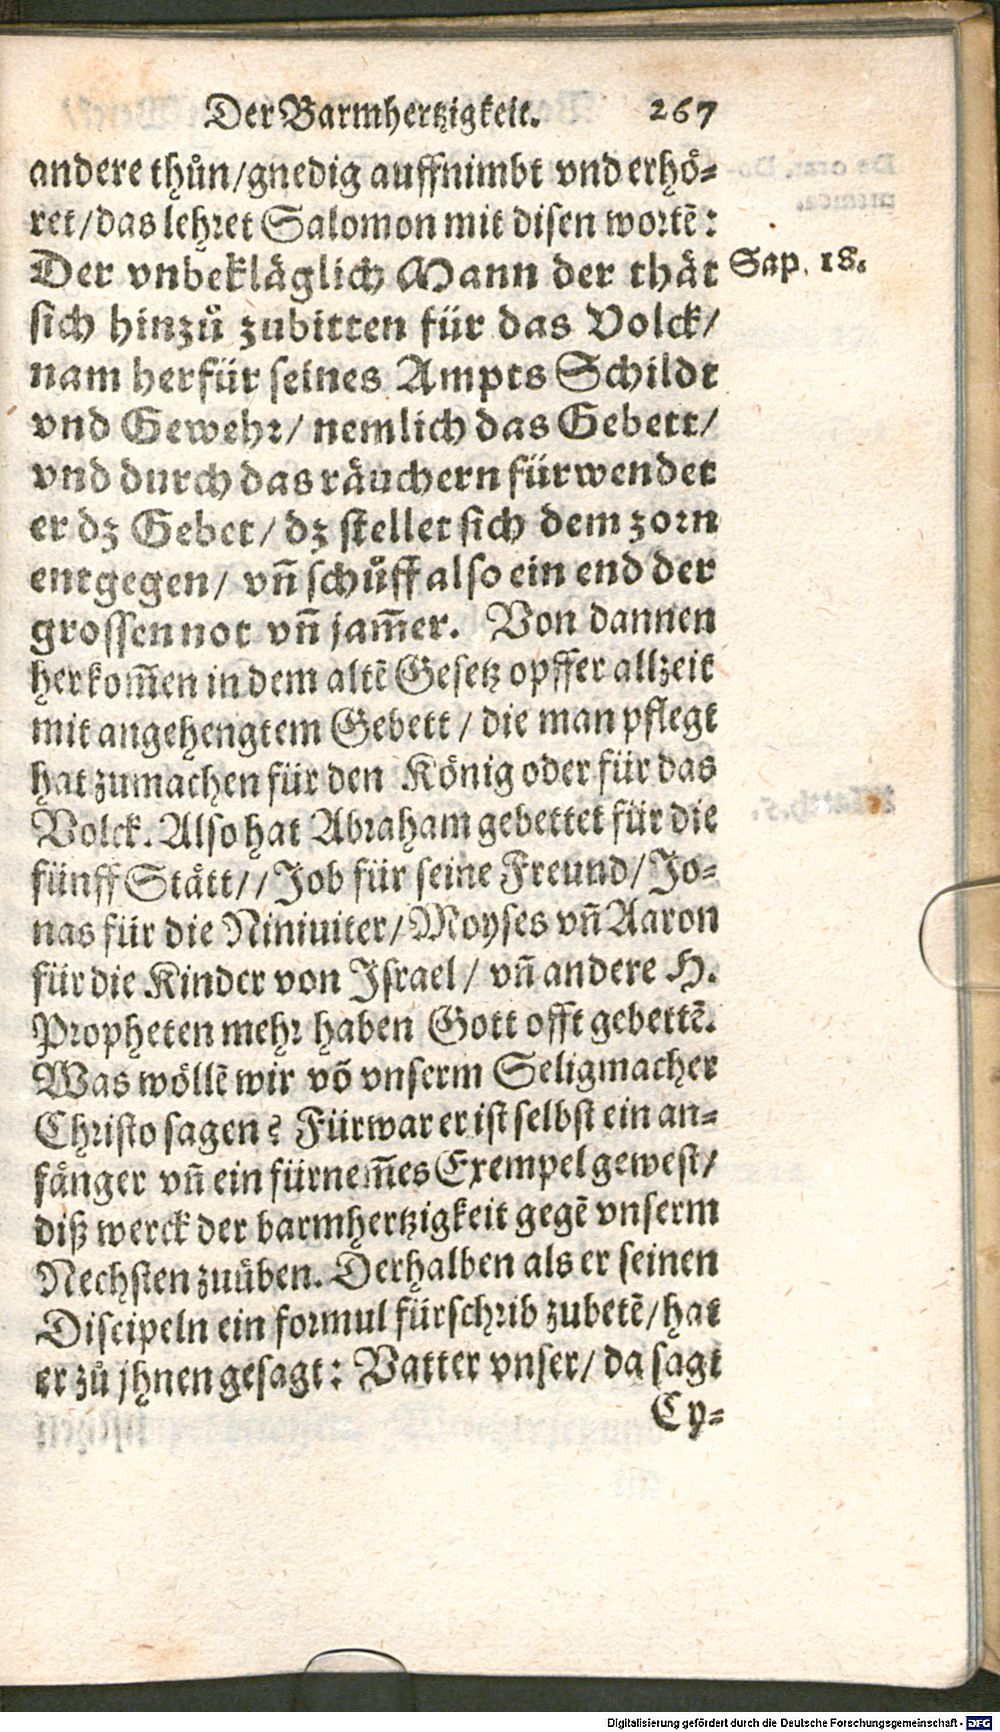 Der Barmhertzigkeit. 267
andere thůn/gnedig auffnimbt vnd erhö-
ret/das lehret Salomon mit disen wortẽ:
Der vnbekläglich Mann der thät
Sap. 18.
sich hinzů zubitten für das Volck/
nam herfür seines Ampts Schildt
vnd Gewehr/ nemlich das Gebett/
vnd durch das räuchern fürwendet
er dz Gebet/ dz stellet sich dem zorn
entgegen/ vñ schůff also ein end der
grossen not vñ jam̃er. Von dannen
herkom̃en in dem altẽ Gesetz opffer allzeit
mit angehengtem Gebett / die man pflegt
hat zumachen für den König oder für das
Volck. Also hat Abraham gebettet für die
fünff Stätt// Job für seine Freund/ Jo-
nas für die Niniuiter/ Moyses vñ Aaron
für die Kinder von Israel/ vñ andere H.
Propheten mehr haben Gott offt gebettẽ.
Was wöllẽ wir võ vnserm Seligmacher
Christo sagen? Fürwar er ist selbst ein an-
fänger vñ ein fürnem̃es Exempel gewest/
diß werck der barmhertzigkeit gegẽ vnserm
Nechsten zuüben. Derhalben als er seinen
Discipeln ein formul fürschrib zubetẽ/ hat
er zů jhnen gesagt: Vatter vnser/ da sagt
Cy-
Digitalisierung gefördert durch die Deutsche Forschungsgemeinschaft - DFG